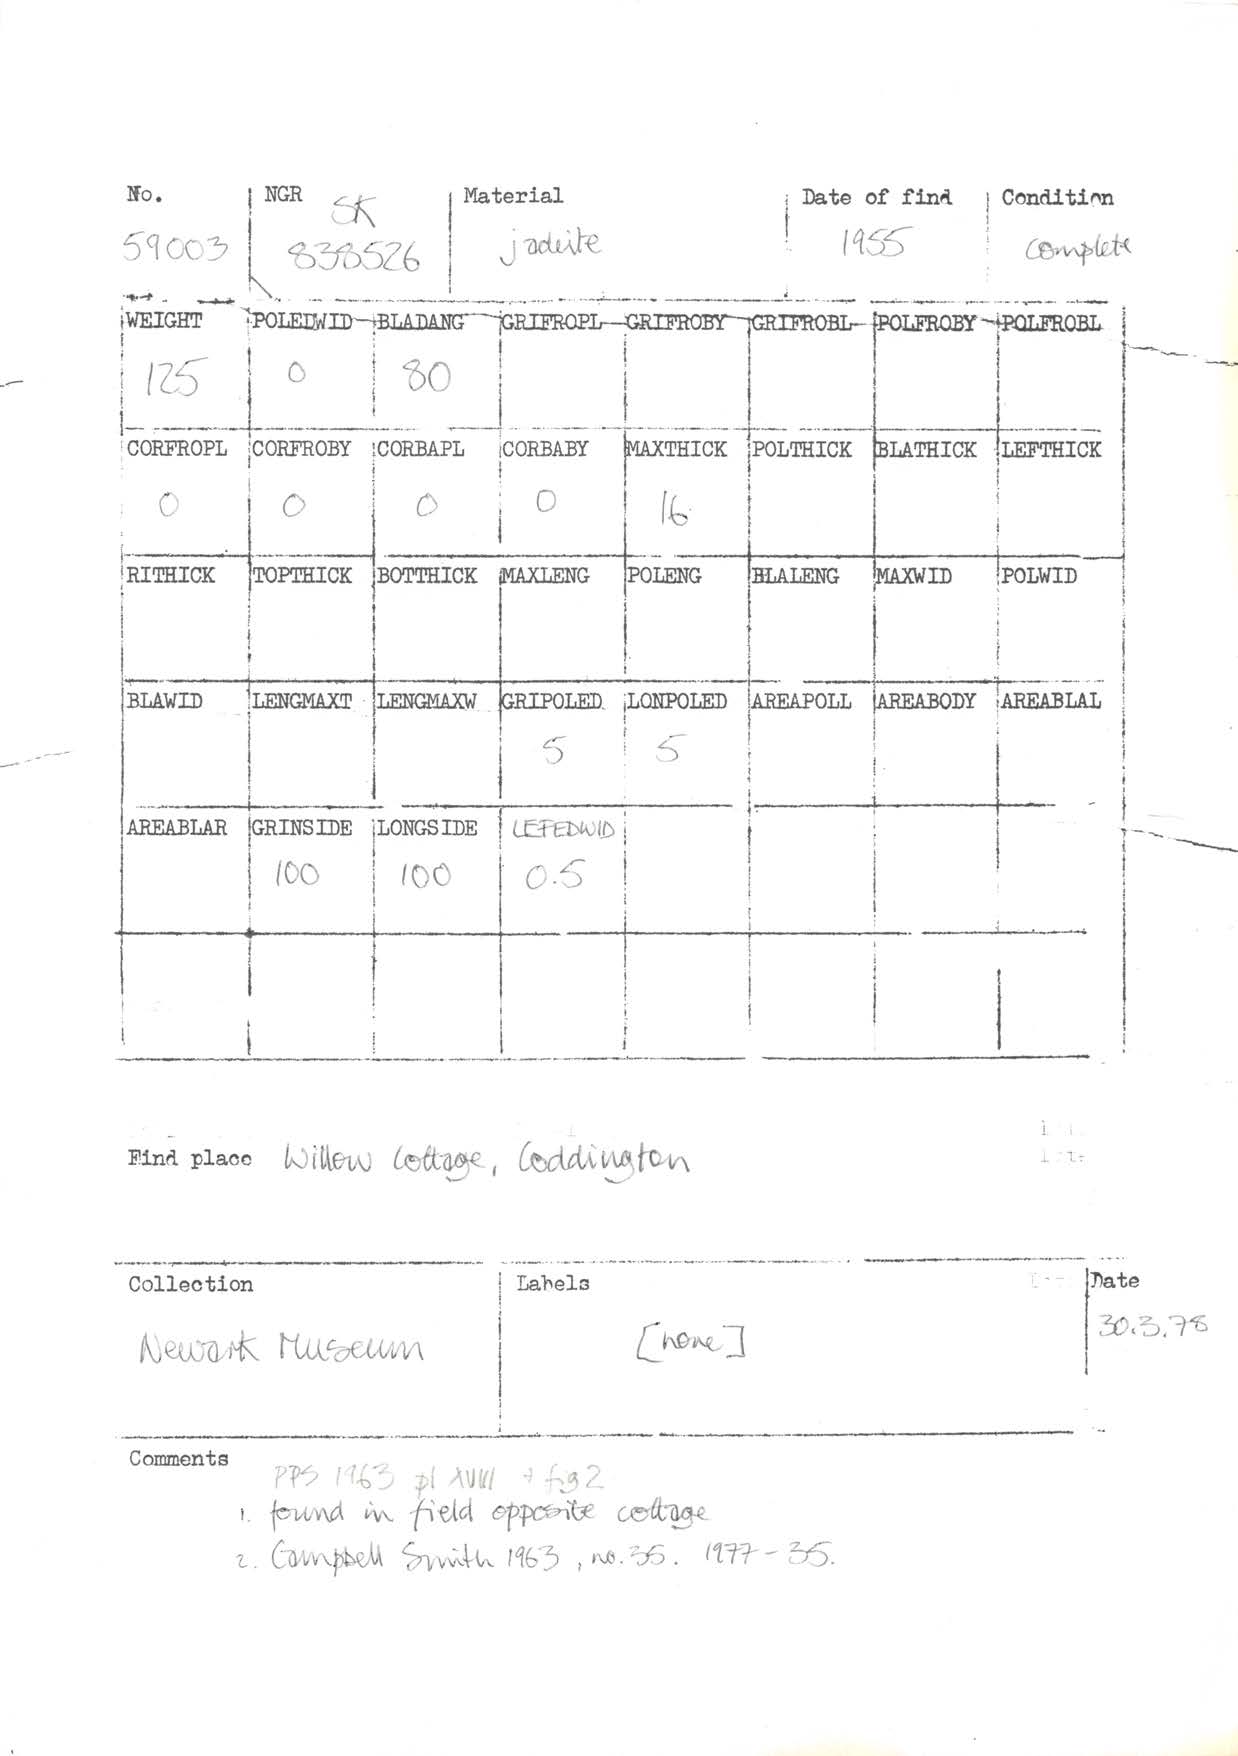 No. NGR Material Date of find Condition
SK
59003 838526 jadeite 1955 complete
WEIGHT POLEDWID BLADANG GRIFROPL GRIFROBY GRIFROBL POLFROBY POLFROBL
125 0 80
CORFROPL CORFROBY CORBAPL CORBABY MAXTHICK POLTHICK BLATHICK LEFTHICK
0 0 0 0 16
RITHICK TOPTHICK BOTTHICK MAXLENG POLENG BLALENG MAXWID POLWID
BLAWID LENGMAXT LENGMAXW GRIPOLED LONPOLED AREAPOLL AREABODY AREABLAL
5 5
AREABLAR GRINSIDE LONGSIDE LEFEDWID
100 100 0.5
Find place Willow Cottage, Coddington
Collection Labels Date
Newark Museum [none] 30.3.78
Comments
PPS 1963 pl XVIII + fig 2
1. found in field opposite cottage
2. Campbell Smith 1963, no. 35. 1977-35.